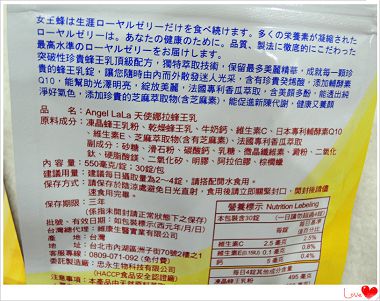 女王蜂は生涯ローヤルゼリーだけを食べ続けます。多くの栄養素が凝縮された
ローヤルゼリーは、あなたの健康のために、品質、製法に徹底的にこだわった
最高水準のローヤルゼリーをお届けします。
突破性珍貴蜂王乳頂級配方，獨特萃取技術，保留最多美麗精華，成就每一顆珍
貴的蜂王乳錠，讓您隨時由內而外散發迷人光采，含有珍貴發燒酸，添加輔酵素
Q10，能幫助光澤明亮，綻放美麗，法國專利香瓜萃取，含美顏多酚，能透出純
淨好氣色，添加珍貴的芝麻萃取物(含芝麻素)，能促進新陳代謝，健康又養顏
品名：Angel LaLa 天使娜拉蜂王乳
原料成分：凍晶蜂王乳粉、乾燥蜂王乳、牛奶鈣、維生素C、日本專利輔酵素Q10
、維生素E、芝麻萃取物(含有芝麻素)、法國專利香瓜萃取
副成分：砂糖、滑石粉、碳酸鈣、乳糖、微晶纖維素、澱粉、二氧化
鈦、硬脂酸鎂、二氧化矽、明膠、阿拉伯膠、棕櫚蠟
內容量：550毫克/錠，30錠/包
建議用量：建議每日攝取量為2～4錠，請搭配開水食用。
保存方法：請存放於陰涼處避免日光直射，食用後請立即關緊封口，開封後請儘
保存期限：三年
(係指未開封請正常狀態下之保存)
批號、有效日期：如包裝標示(西元年/月/日)
台灣總代理：維康生醫實業有限公司
產地：台灣
地址：台北市內湖區洲子街70號2樓之1
客服專線：0809-071-092 (免付費)
委託製造廠：忠永生物科技有限公司
(HACCP食品安全認證廠)
營養標示 Nutrition Labeling
本包裝含30錠
每錠
維生素C 2.5 毫克 2.5%
0.8%
鈣 5 毫克 0.4%
每日4錠其他成分含量
495 毫克
Love